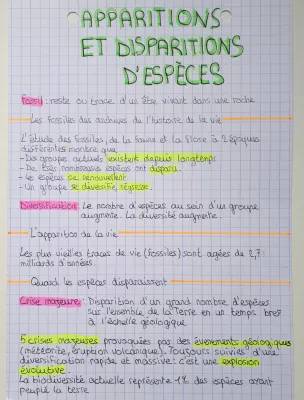 APPARITIONS
ET DISPARITIONS
D'ESPÈCES
Fossil : reste ou trace d'un être vivant dans une roche
Les fossiles des archives de l'histoire de la vie
L'étude des fossiles, de la faune et la flore à 2 époques
différentes montre que
- Des groupes actuels existent depuis longtemps
- De très nombreuses espèces ont disparu.
- Les espèces se renouvellent
- Un groupe se diversifie, régresse.
Diversification : Le nombre d'espèces au sein d'un groupe
augmente. La diversité augmente.
L'apparition de la vie
Les plus vieilles traces de vie (fossiles) sont agées de 2,7
milliards d'années.
Quand les espèces disparaissent
Crise majeure : Disparition d'un grand nombre d'espèces
sur l'ensemble de la Terre en un temps bref
à l'échelle géologique
5 crises majeures provoquées par des évènements géologiques
(météorite, éruption volcanique). Toujours suivies d'une
diversification rapide et massive : c'est une explosion
évolutive.
La biodiversité actuelle représente 1% des espèces ayant
peuplé la terre